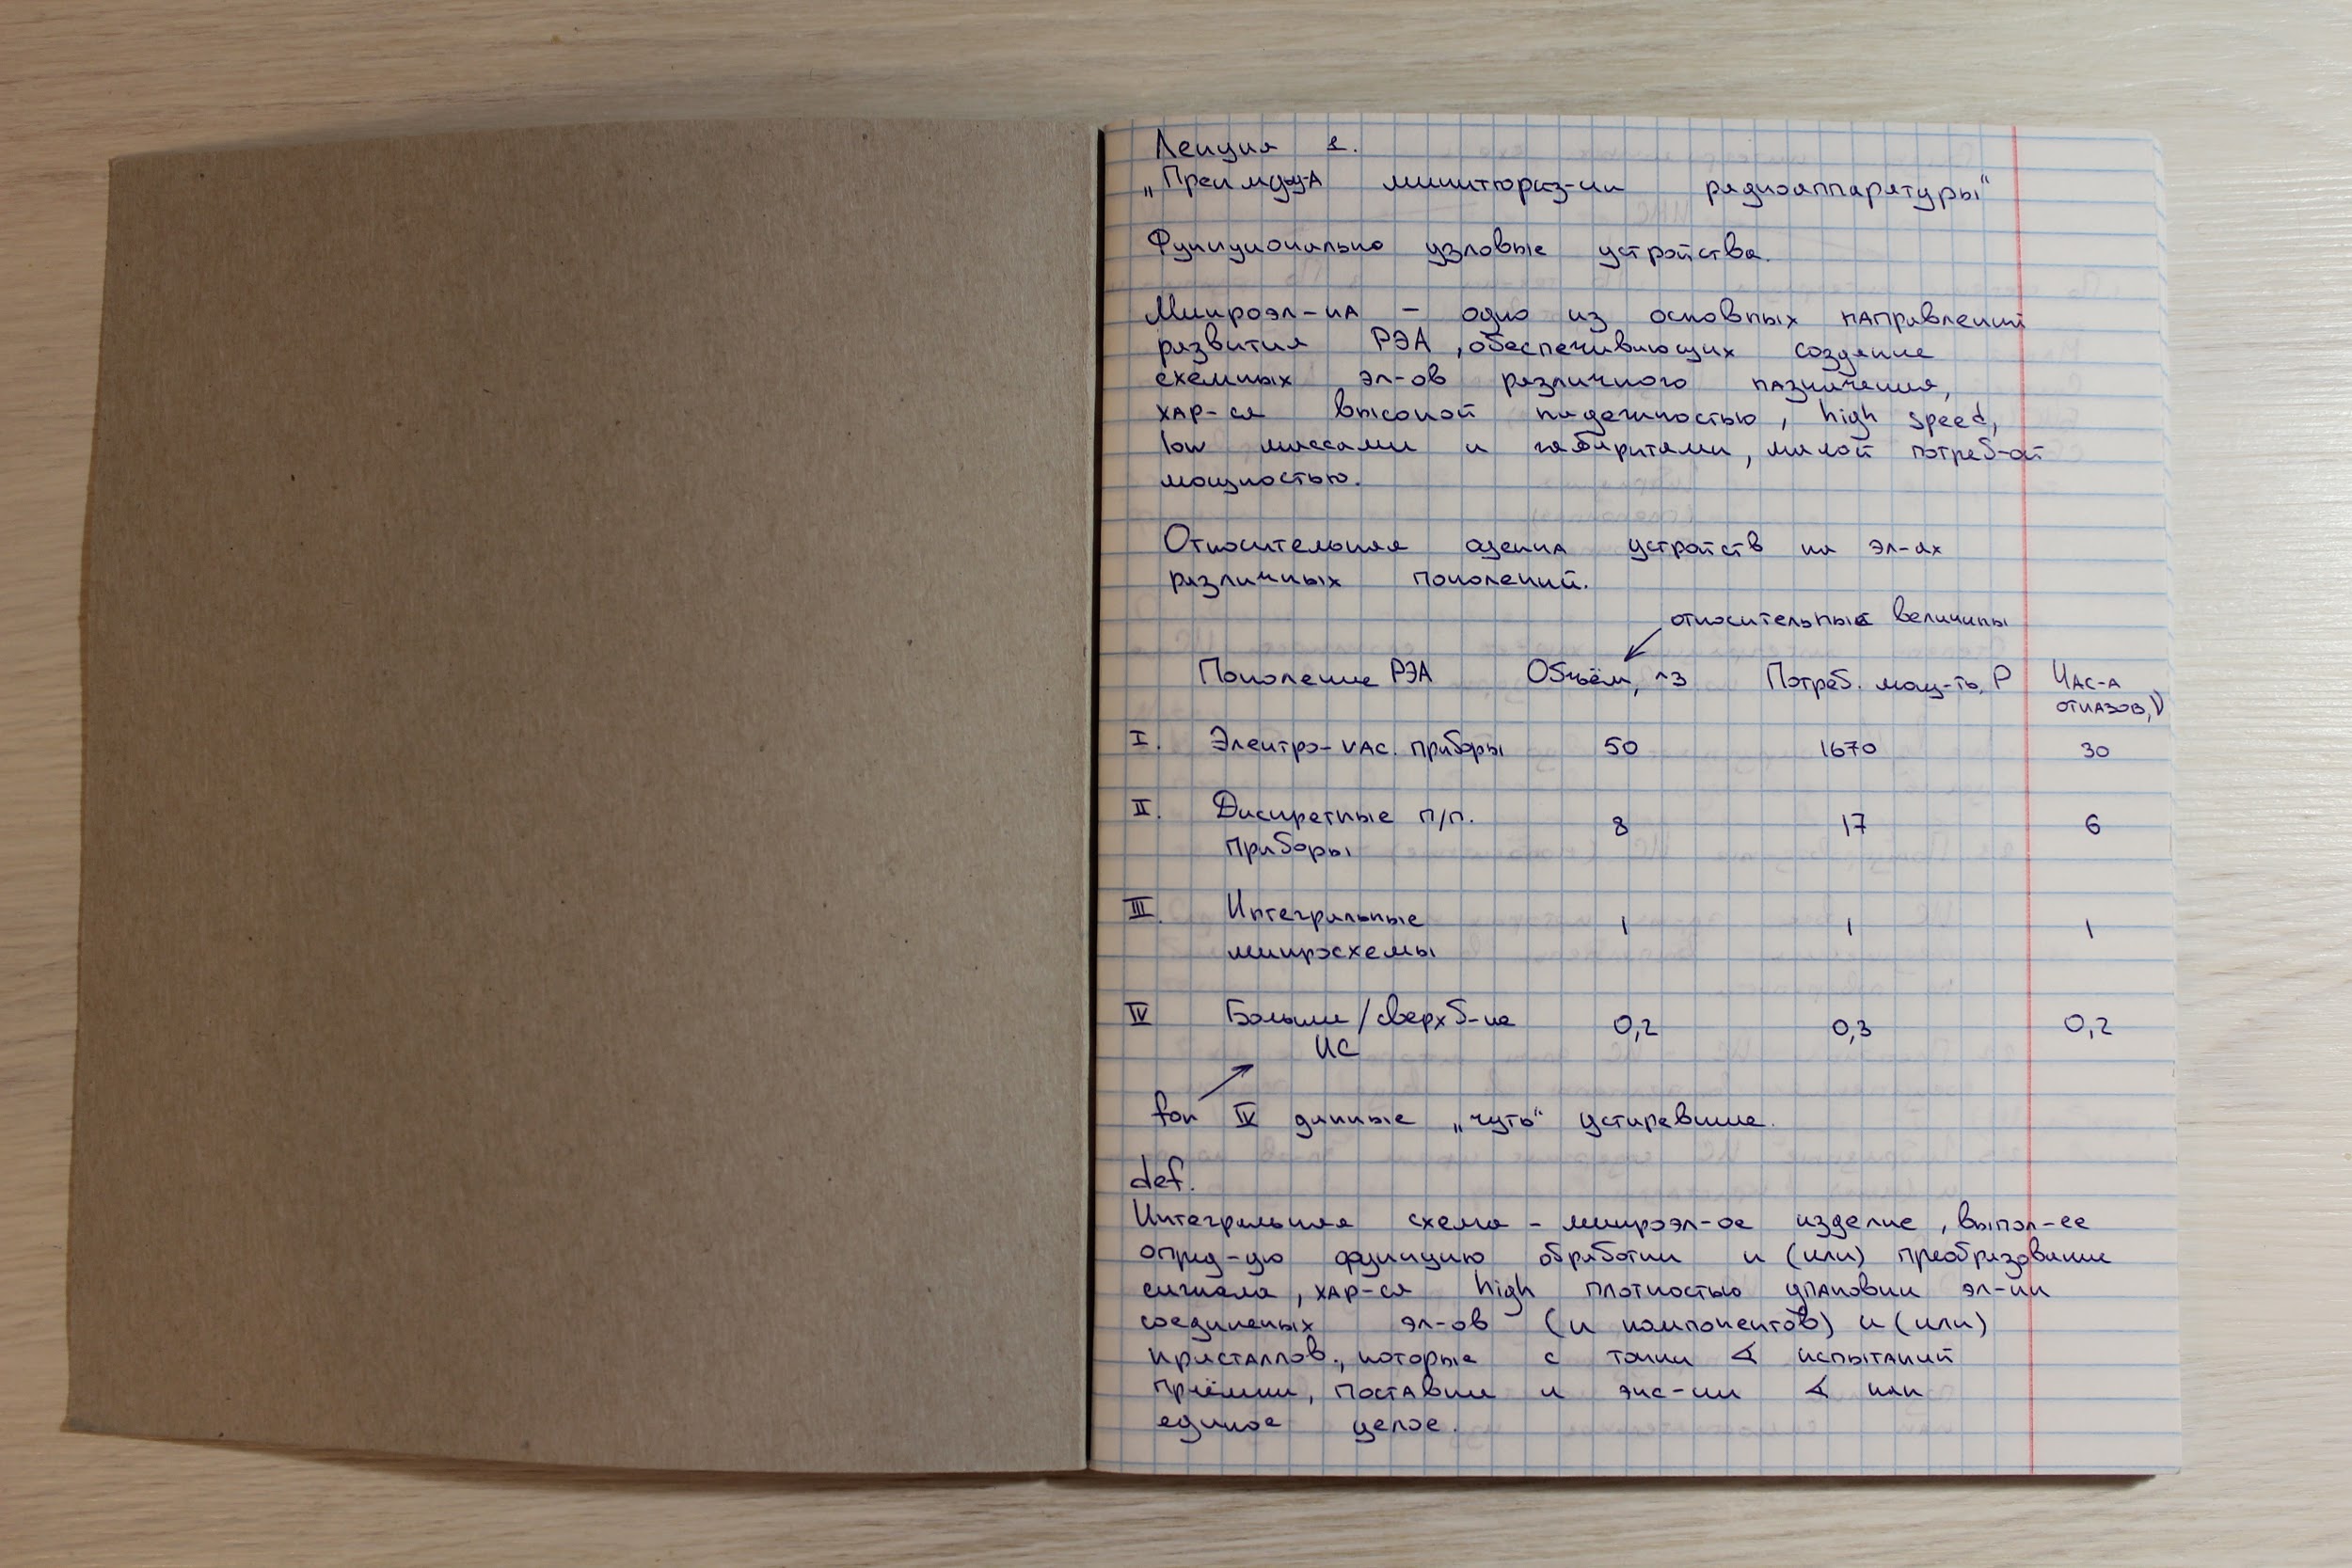 Лекция 1.
„Преимущ-А миниатюриз-ии радиоаппаратуры“
Функционально узловые устройства.
Микроэл-кА – одно из основных направлений
развития РЭА, обеспечивающих создание
схемных эл-ов различного назначения,
хар-ся высокой надежностью, high speed,
low массами и габаритами, малой потреб-ой
мощностью.
Относительная оценка устройств на эл-ах
различных поколений.
относительные величины
Поколение РЭА Объём, ^3 Потреб. мощ-ть, P Час-а
отказов, ν
I. Электро-vac. приборы 50 1670 30
II. Дискретные п/п. 8 17 6
приборы
III. Интегральные 1 1 1
микросхемы
IV Больши/сверхб-ие 0,2 0,3 0,2
ИС
for IV данные „чуть“ устаревшие.
def.
Интегральная схема – микроэл-ое изделие, выпол-ее
опред-ую функцию обработки и (или) преобразование
сигнала, хар-ся high плотностью упаковки эл-ки
соединеных эл-ов (и компонентов) и (или)
кристаллов, которые с точки ∢ испытаний
приёмки, поставки и экс-ии ∢ как
единое целое.